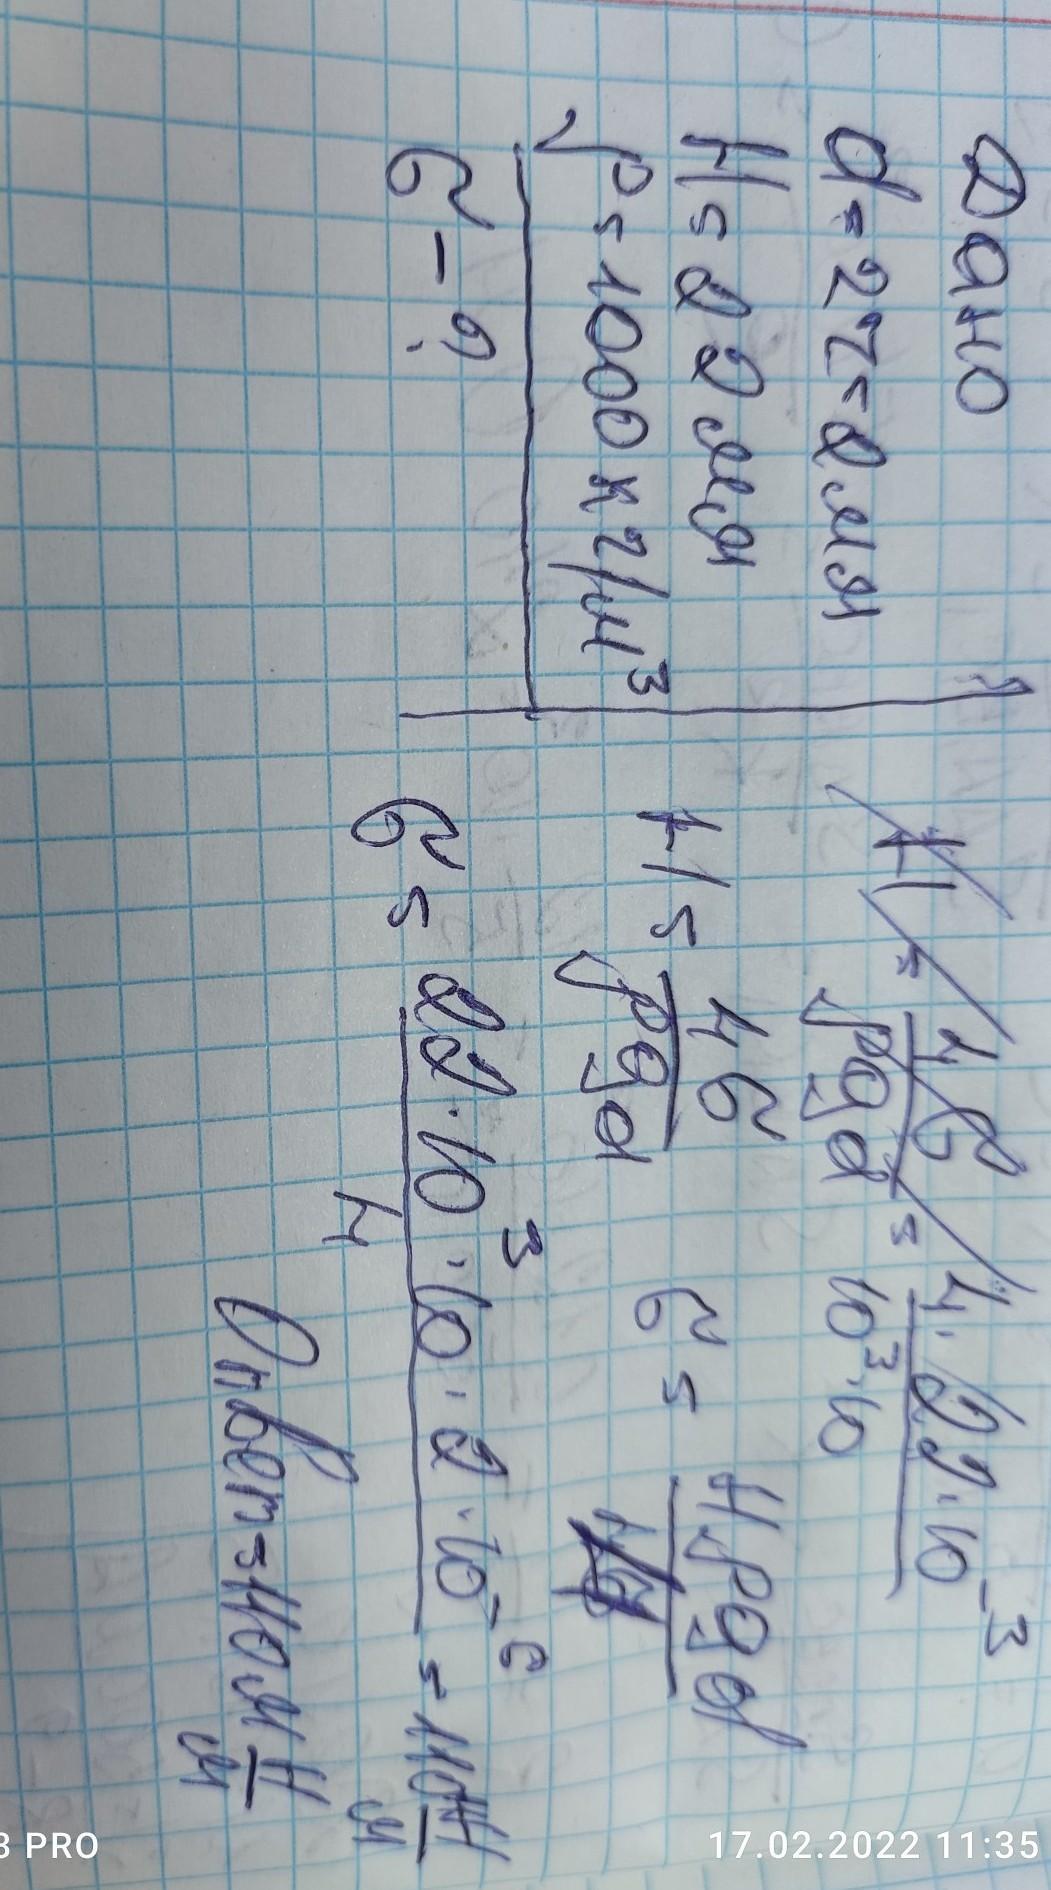 Дано
d = 2r = 2 мм
H = 22 мм
ρ = 1000 кг/м³
σ - ?
H = 4σ / ρgd = 4·22·10⁻³ / 10³·10
H = 4σ / ρgd σ = Hρgd / 4
σ = 22·10³·10·2·10⁻⁶ / 4 = 110 Н/м
Ответ = 110 м Н/м
3 PRO
17.02.2022 11:35